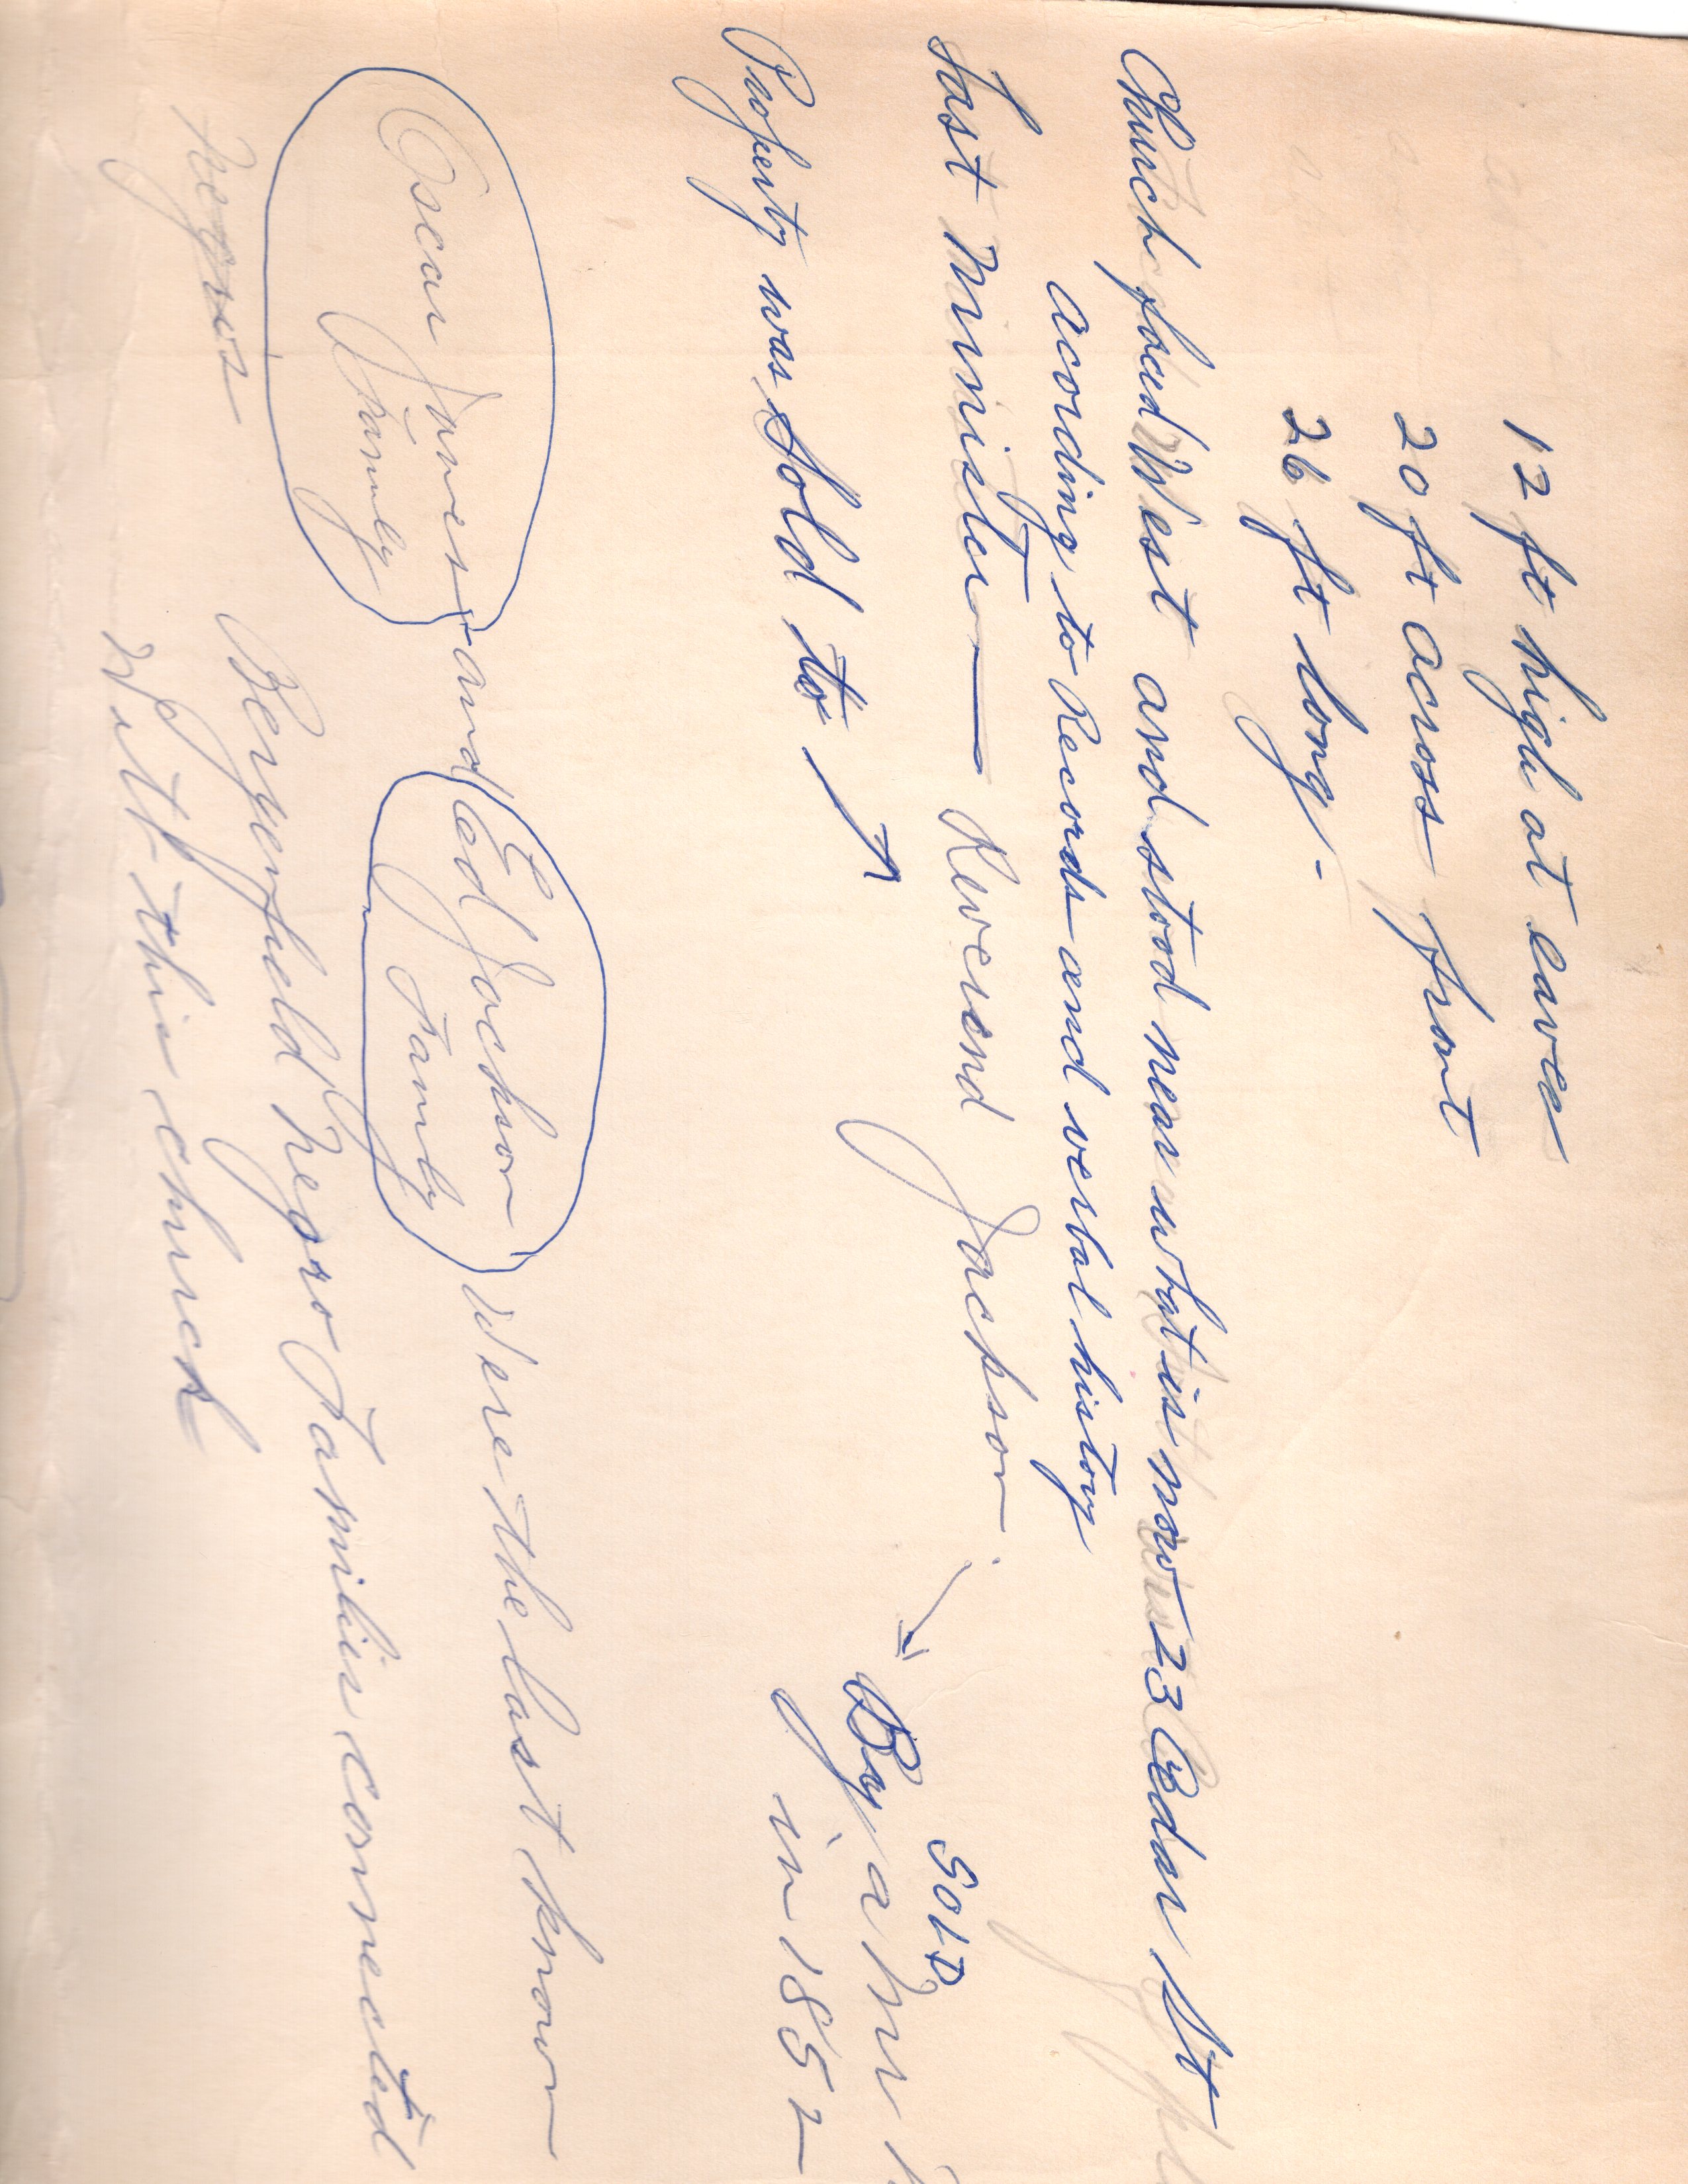 12 ft high at eaves
20 ft across front
26 ft long.
Church faced West and stood near what is now 23 Cedar St
acording to Records and verbal history
Last Minister — Reverend Jackson.
SOLD
Property was sold to
By a Mr
in 1852
Oscar Jones and Ed Jackson were the last known
Family Family
Bergenfield Negro Families connected
Negros
With this church